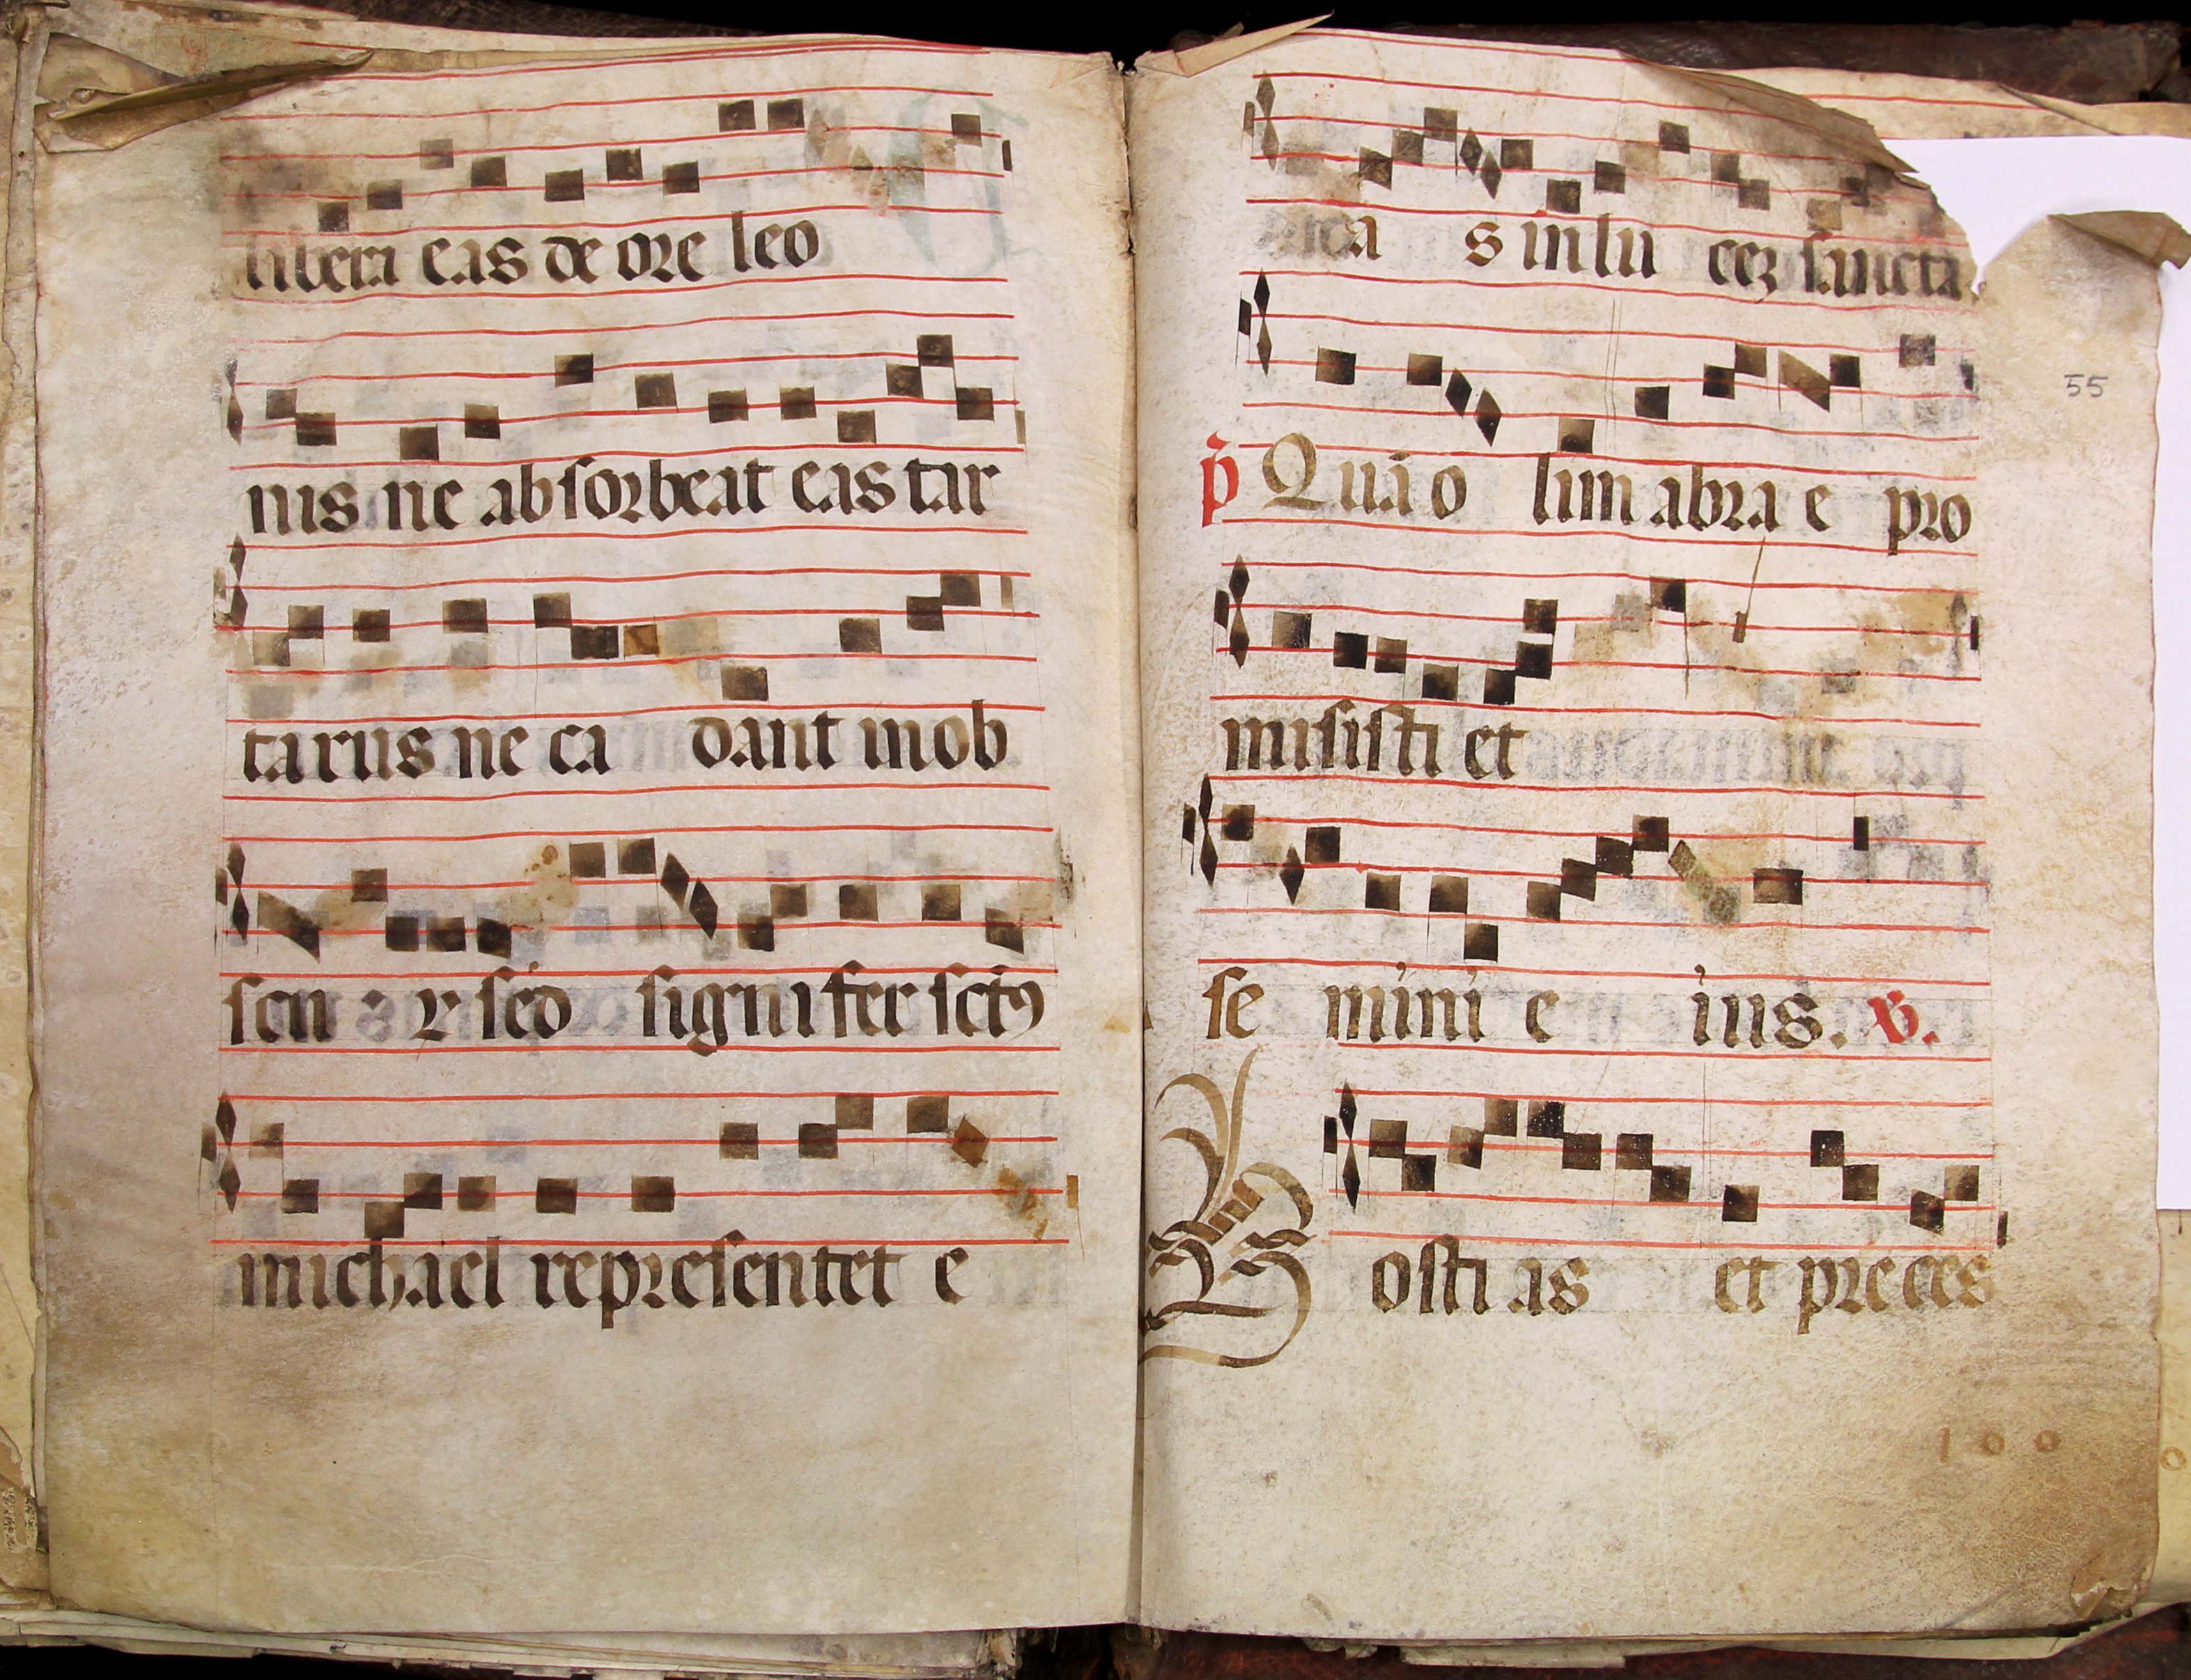 libera eas de ore leo
nis ne absorbeat eas tar
tarus ne ca dant in ob
scu r sed signifer sctꝰ
michael representet e
as in lu cez sancta
55
p̃ Quā o lim abra e pro
misisti et
se mini e ius. ℣.
Hosti as et pre ces
100